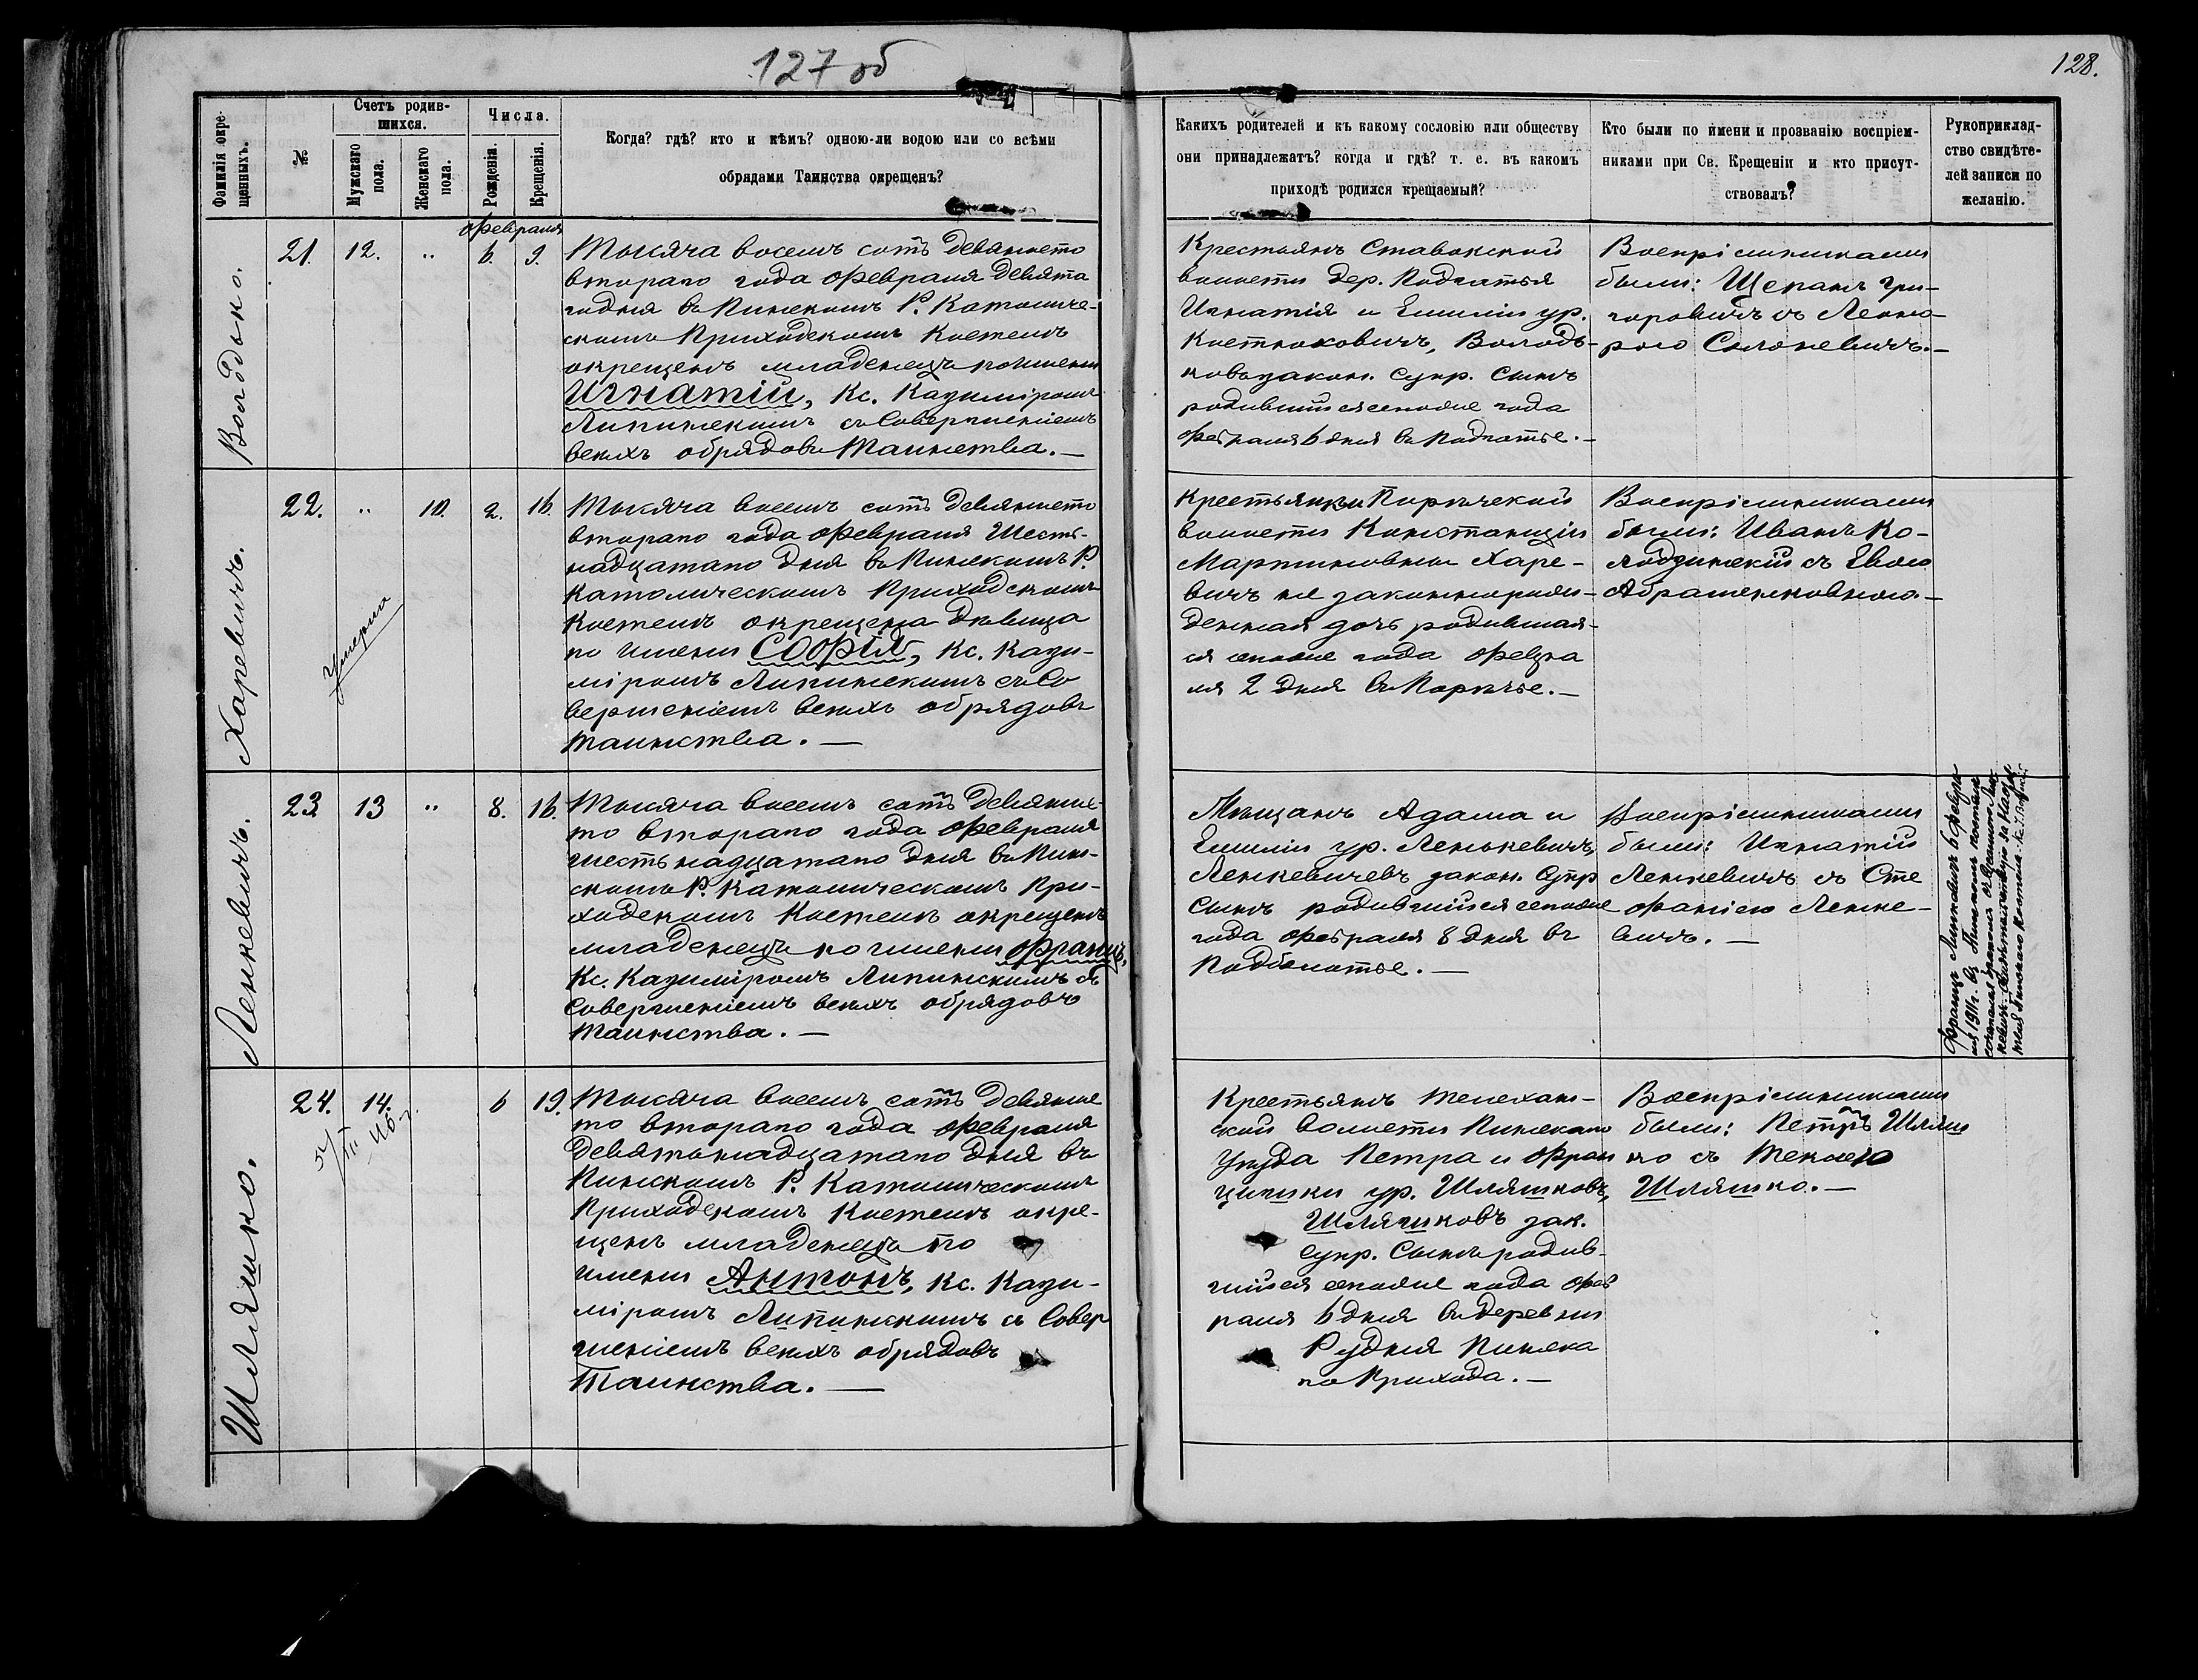 127 об
128.
Фамилія окре-
щенныхъ.
№
Счетъ родив-
шихся.
Мужскаго
пола.
Женскаго
пола.
Числа.
Рожденія.
Крещенія.
Когда? гдѣ? кто и кѣмъ? одною-ли водою или со всѣми
обрядами Таинства окрещенъ?
Какихъ родителей и къ какому сословію или обществу
они принадлежатъ? когда и гдѣ? т. е. въ какомъ
приходѣ родился крещаемый?
Кто были по имени и прозванію воспріем-
никами при Св. Крещеніи и кто присут-
ствовалъ?
Рукоприклад-
ство свидѣте-
лей записи по
желанію.
Февраля
Володько.
21. 12. „ 6. 9.
Тысяча восемь сотъ девяносто
втораго года Февраля Девята
годня въ Пинскомъ Р. Католиче-
скомъ Приходскомъ Костелѣ
окрещенъ младенецъ по имени
Игнатій, Кс. Казиміромъ
Липинскимъ съ Совершеніемъ
всѣхъ обрядовъ Таинства.—
Крестьянъ Ставокской
волости Дер. Подгатья
Игнатія и Емиліи ур.
Володь-
ковъ закон. Супр. Сынъ
родившійся сего же года
Февраля 6 дня въ Подгатье.—
Воспріемниками
были: Щепанъ Гри-
горовичъ съ Леоно-
рою
Харевичъ.
22. „ 10. 2. 16.
умерла
Тысяча восемь сотъ Девяносто
втораго года Февраля Шест-
надцатаго Дня въ Пинскомъ Р.
Католическомъ Приходскомъ
Костелѣ окрещена Дѣвица
по имени Софія, Кс. Кази-
міромъ Липинскимъ съ Со
вершеніемъ всѣхъ обрядовъ
Таинства.—
Крестьянки Порѣчской
волости Констанціи
Мартиновны Харе-
вичъ не законнорож-
денная дочь родившая-
ся сего же года Февра
ля 2 дня въ Порѣчье.—
Воспріемниками
были: Иванъ Ко-
лодзинскій съ Евою
Абраменковною—
Ленкевичъ.
23 13 „ 8. 16.
Тысяча восемь сотъ Девянос-
то втораго года Февраля
шестьнадцатаго Дня въ Пин-
скомъ Р. Католическомъ При-
ходскомъ Костелѣ окрещенъ
младенецъ по имени Францъ,
Кс. Казиміромъ Липинскимъ съ
Совершеніемъ всѣхъ обрядовъ
Таинства.—
Мѣщанъ Адама и
Емиліи ур. Ленькевичъ,
Ленкевичевъ закон. Супр
Сынъ родившійся сего же
года Февраля 8 дня въ
Подболотье.—
Воспріемниками
были: Игнатій
Ленкевичъ съ Сте
фаніею Ленке-
вичъ.—
Францъ Линкевичъ 6 Февра
ля 1911 г. въ Пинскомъ костелѣ
Шляшко.
24. 14. 6 19.
Тысяча восемь сотъ Девянос
то втораго года Февраля
Девятьнадцатаго Дня въ
Пинскомъ Р. Католическомъ
Приходскомъ Костелѣ окре-
щенъ младенецъ по
имени Антонъ, Кс. Кази-
міромъ Липинскимъ съ Совер
шеніемъ всѣхъ обрядовъ
Таинства.—
Крестьянъ Телехан-
ской волости Пинскаго
Уѣзда Петра и Фран
цишки ур. Шляшковъ,
Шляшковъ зак.
Супр. Сынъ родив-
шійся сего же года Фев
раля 6 дня въ деревни
Рудня Пинска
го Прихода.—
Воспріемниками
были: Петръ Шляш
ко съ Теклею
Шляшко.—